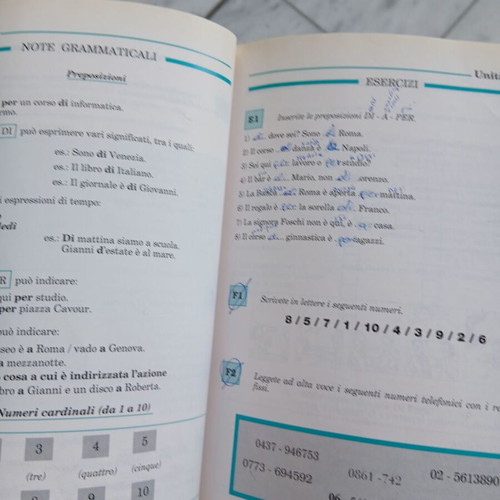 NOTE GRAMMATICALI
Preposizioni
per un corso di informatica.
DI può esprimere vari significati, tra i quali:
es.: Sono di Venezia.
es.: Il libro di Italiano.
es.: Il giornale è di Giovanni.
espressioni di tempo:
es.: Di mattina siamo a scuola.
Gianni d'estate è al mare.
R può indicare:
qui per studio.
per piazza Cavour.
può indicare:
a Roma / vado a Genova.
a mezzanotte.
cosa a cui è indirizzata l'azione
a Gianni e un disco a Roberta.
Numeri cardinali (da 1 a 10)
3 4 5
(tre) (quattro) (cinque)
10
Unità
ESERCIZI
E1 Inserite le preposizioni DI - A - PER.
1) di dove sei? Sono di Roma.
2) Il corso di danza è a Napoli.
3) Sei qui per lavoro o per studio?
4) Il bar è di Mario, non di Lorenzo.
5) La Banca di Roma è aperta per mattina.
6) Il regalo è per la sorella di Franco.
7) La signora Foschi non è qui, è a casa.
8) Il corso di ginnastica è per ragazzi.
F1 Scrivete in lettere i seguenti numeri.
8 / 5 / 7 / 1 / 10 / 4 / 3 / 9 / 2 / 6
F2 Leggete ad alta voce i seguenti numeri telefonici con i
fissi.
0437 - 946753
0861 - 742
02 - 5613890
0773 - 694592
06